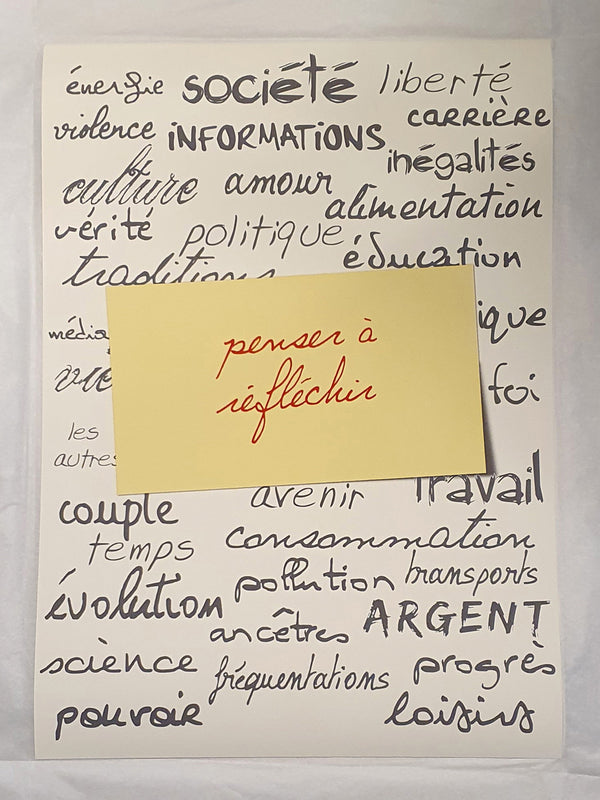 énergie société liberté
violence INFORMATIONS carrière
culture amour inégalités
vérité politique alimentation
traditions éducation
média ique
vie foi
penser à
réfléchir
les
autres
couple avenir travail
temps consommation
évolution pollution transports
ancêtres ARGENT
science fréquentations progrès
pouvoir loisirs